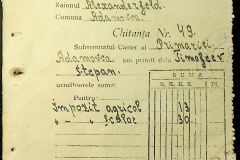 Raionul Alexanderfeld.
Comuna Adamovca
Chitanța Nr. 49.
Subsemnatul Casier al Primariei
Adamovca am primit dela Timofeev
Stepan.
următoarele sume:
SUMA
R. K. K. S. M.
Pentru
Impozit agricol 13
" - " - școlar 30